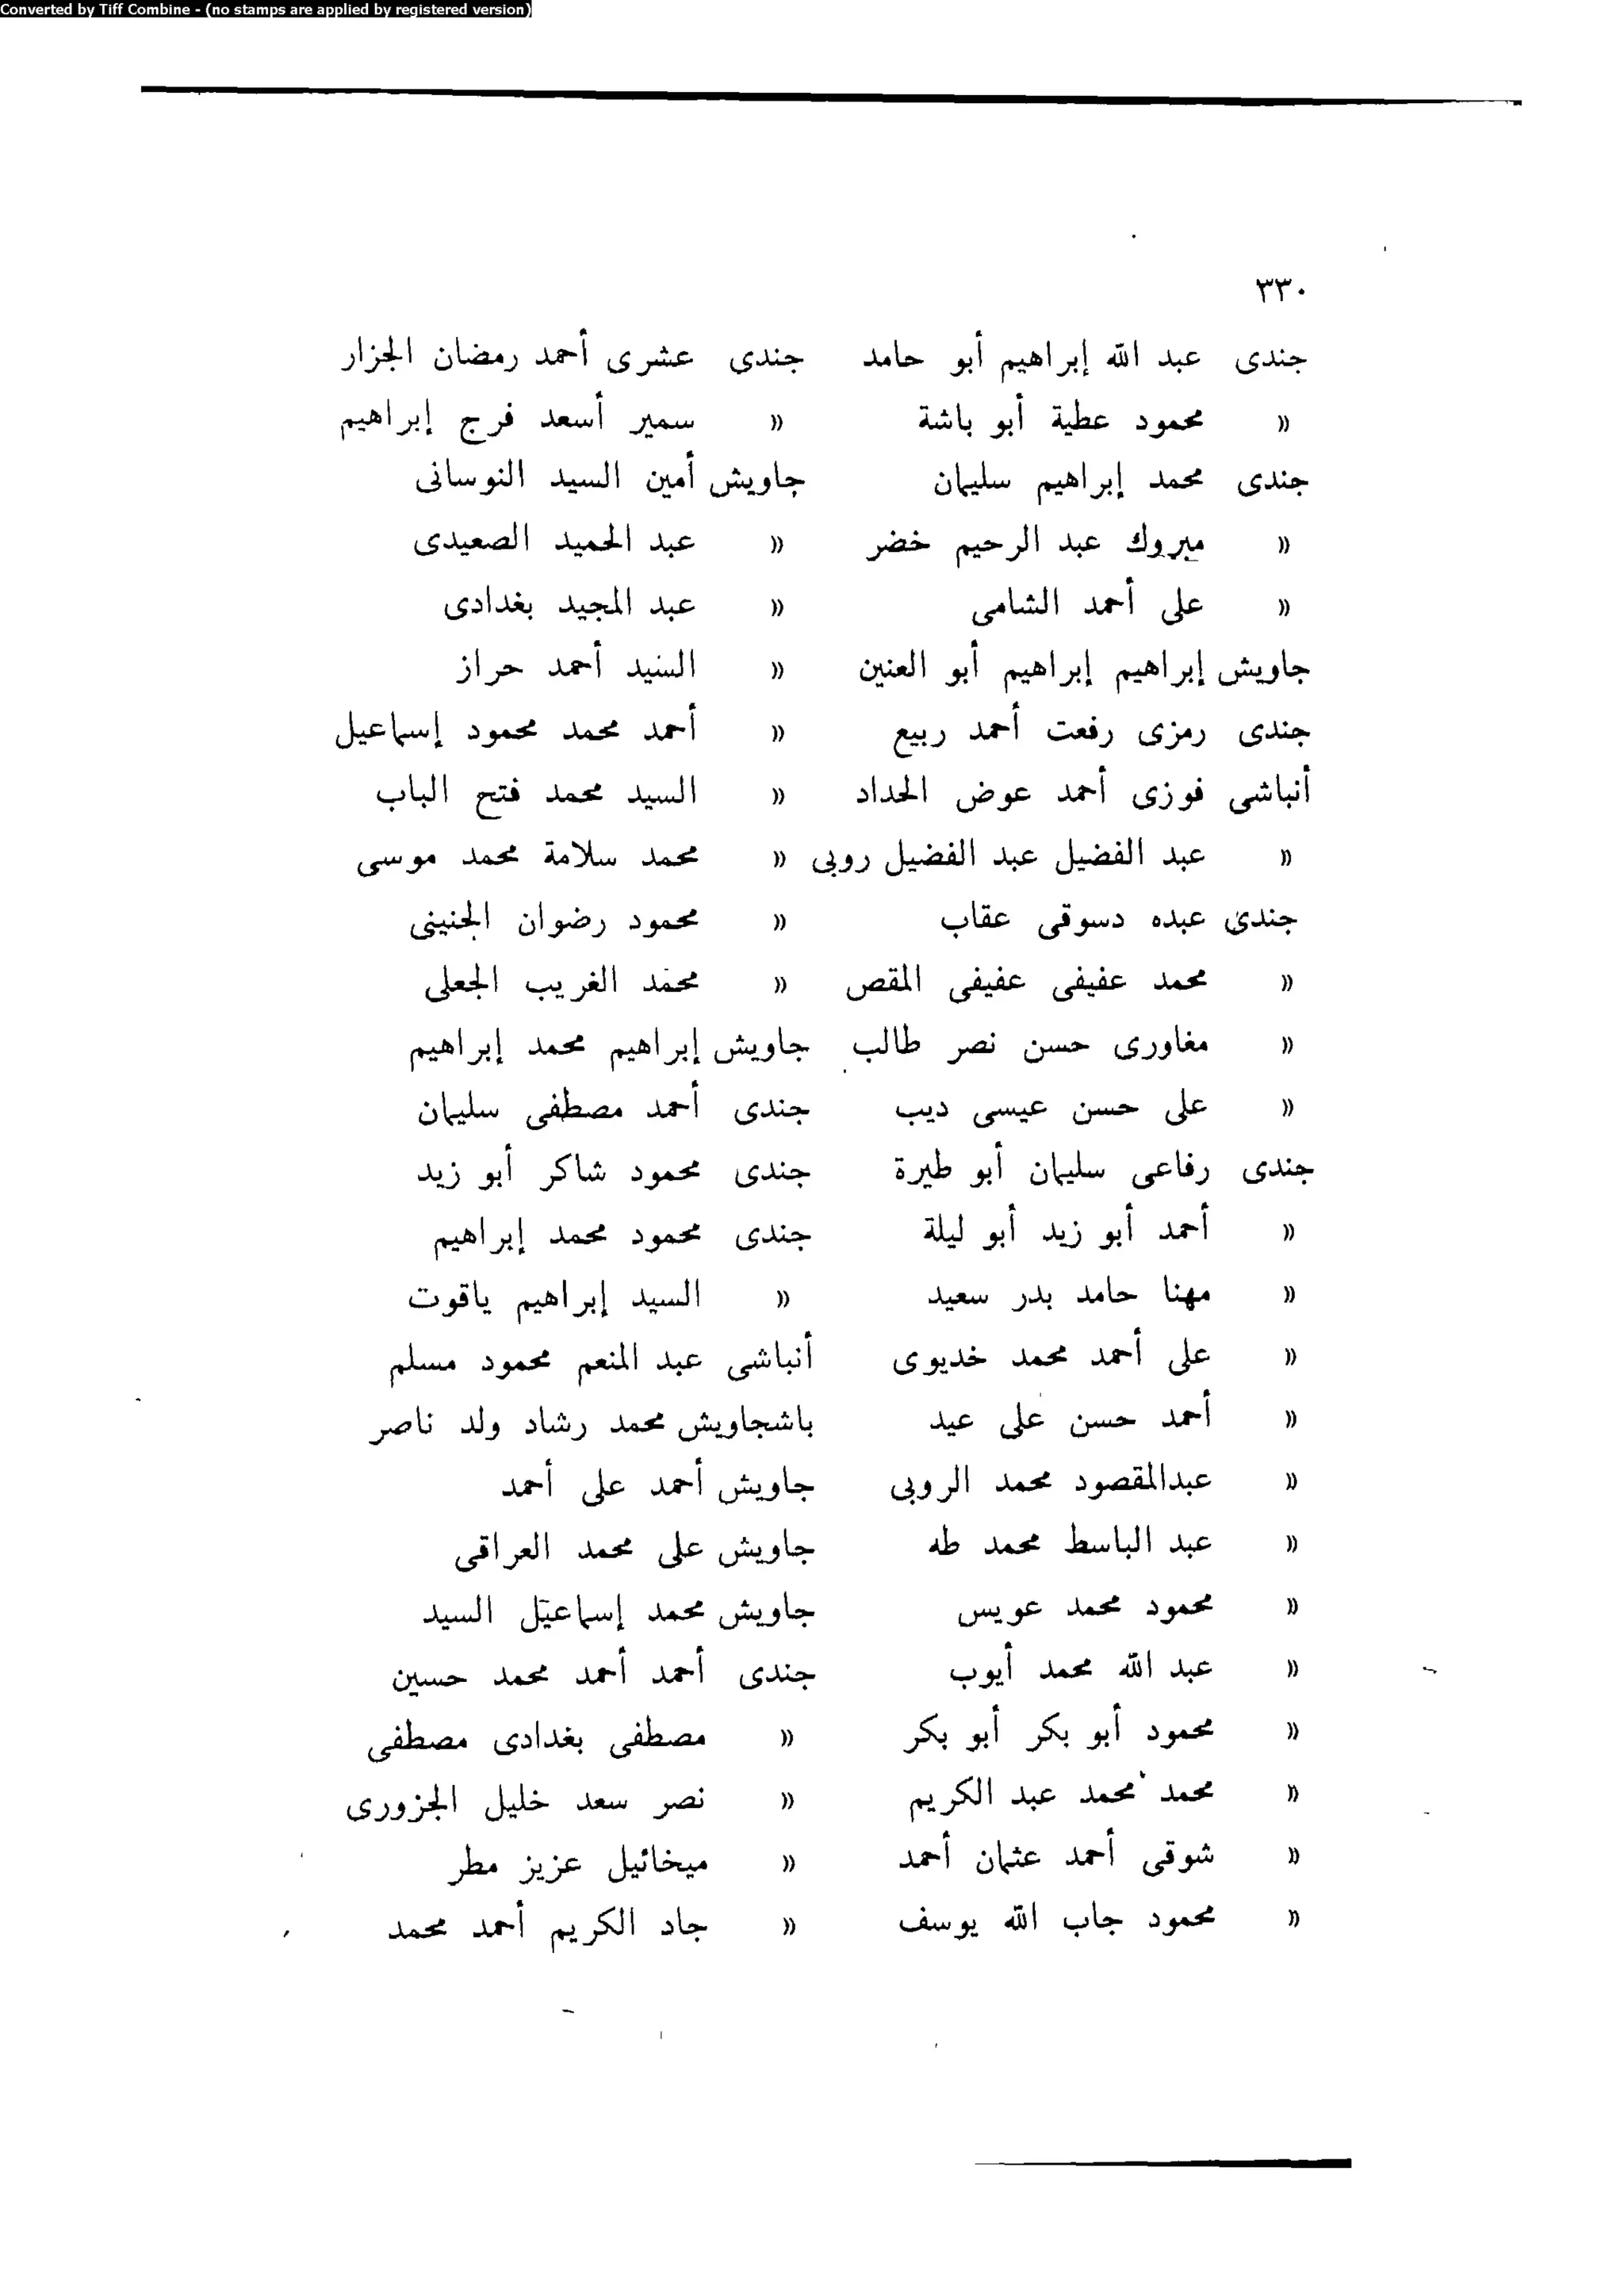 Converted by Tiff Combine - (no stamps are applied by registered version)
٣٣٠
جندى عبد الله إبراهيم أبو حامد جندى عشرى أحمد رمضان الجزار
« محمود عطية أبو باشة « سمير أسعد فرج إبراهيم
جندى محمد إبراهيم سليمان جاويش أمين السيد النوسانى
« مبروك عبد الرحيم خضر « عبد الحميد الصعيدى
« على أحمد الشامى « عبد المجيد بغدادى
جاويش إبراهيم إبراهيم أبو العنين « السيد أحمد حراز
جندى رمزى رفعت أحمد ربيع « أحمد محمد محمود إسماعيل
أنباشى فوزى أحمد عوض الحداد « السيد محمد فتح الباب
« عبد الفضيل عبد الفضيل روبى « محمد سلامة محمد موسى
جندى عبده دسوقى عقاب « محمود رضوان الجنينى
« محمد عفيفى عفيفى المقص « محمد الغريب الجعلى
« مغاورى حسن نصر طالب جاويش إبراهيم محمد إبراهيم
« على حسن عيسى ديب جندى أحمد مصطفى سليمان
جندى رفاعى سليمان أبو طيرة جندى محمود شاكر أبو زيد
« أحمد أبو زيد أبو ليلة جندى محمود محمد إبراهيم
« مهنا حامد بدر سعيد « السيد إبراهيم ياقوت
« على أحمد محمد خديوى أنباشى عبد المنعم محمود مسلم
« أحمد حسن على عيد باشجاويش محمد رشاد ولد ناصر
« عبدالمقصود محمد الروبى جاويش أحمد على أحمد
« عبد الباسط محمد طه جاويش على محمد العراقى
« محمود محمد عويس جاويش محمد إسماعيل السيد
« عبد الله محمد أيوب جندى أحمد أحمد محمد حسين
« محمود أبو بكر أبو بكر « مصطفى بغدادى مصطفى
« محمد محمد عبد الكريم « نصر سعد خليل الجزورى
« شوقى أحمد عثمان أحمد « ميخائيل عزيز مطر
« محمود جاب الله يوسف « جاد الكريم أحمد محمد